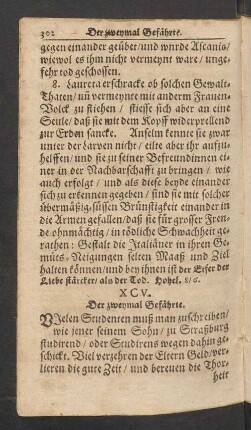 302 Der zweymal Gefährte.
gegen einander geübet / und wurde Ascanio /
wiewol es ihm nicht vermeynt ware / unge-
fehr tod geschossen.
8. Laureta erschracke ob solchen Gewalt-
Thaten / uñ vermeynt mit anderm Frauen-
Volck zu fliehen / stiesse sich aber an eine
Seule / daß sie mit dem Kopff widerprellend
zur Erden sancke. Anselm kennte sie zwar
unter der Larven nicht / eilte aber ihr aufzu-
helffen / und sie zu seiner Befreundinnen ei-
ner in der Nachbarschafft zu bringen / wie
auch erfolgt / und als diese beyde einander
sich zu ergennen geben / sind sie mit solcher
übermäßig-süssen Brünstigkeit einander in
die Armen gefallen / daß sie für grosser Freu-
de ohnmächtig / in tödliche Schwachheit ge-
rathen: Gestalt die Italiäner in ihren Ge-
müts-Neigungen selten Maaß und Ziel
halten können / und bey ihnen ist der Eifer der
Liebe stärcker / als der Tod. Hohel. 8/6.
XCV.
Der zweymal Gefährte.
VJelen Studenten muß man zuschreiben /
wie jener seinem Sohn / zu Straßburg
studirend / oder Studirens wegen dahin ge-
schickt. Viel verzehren der Eltern Geld / ver-
lieren die gute Zeit / und bereuen die Thor-
heit